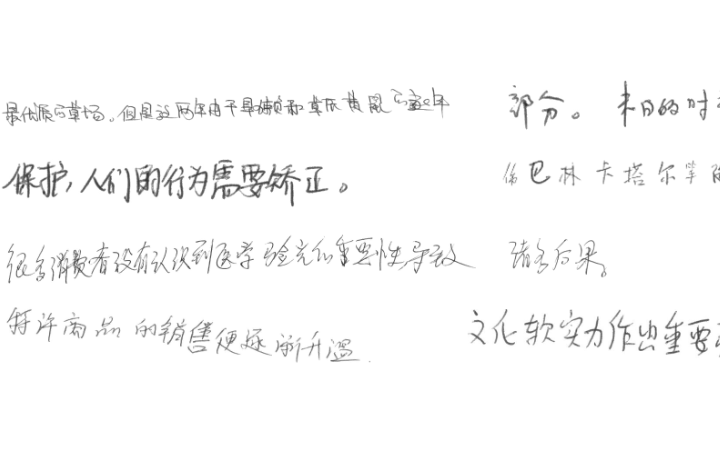 最优质的草场。但是这两年由于旱情和草原黄鼠
部分。末日的时
保护,人们的行为需要矫正。
巴林卡塔尔等
很多消费者没有认识到医学验光的重要性导致
诸多后果。
特许商品的销售便逐渐升温
文化软实力作出重要